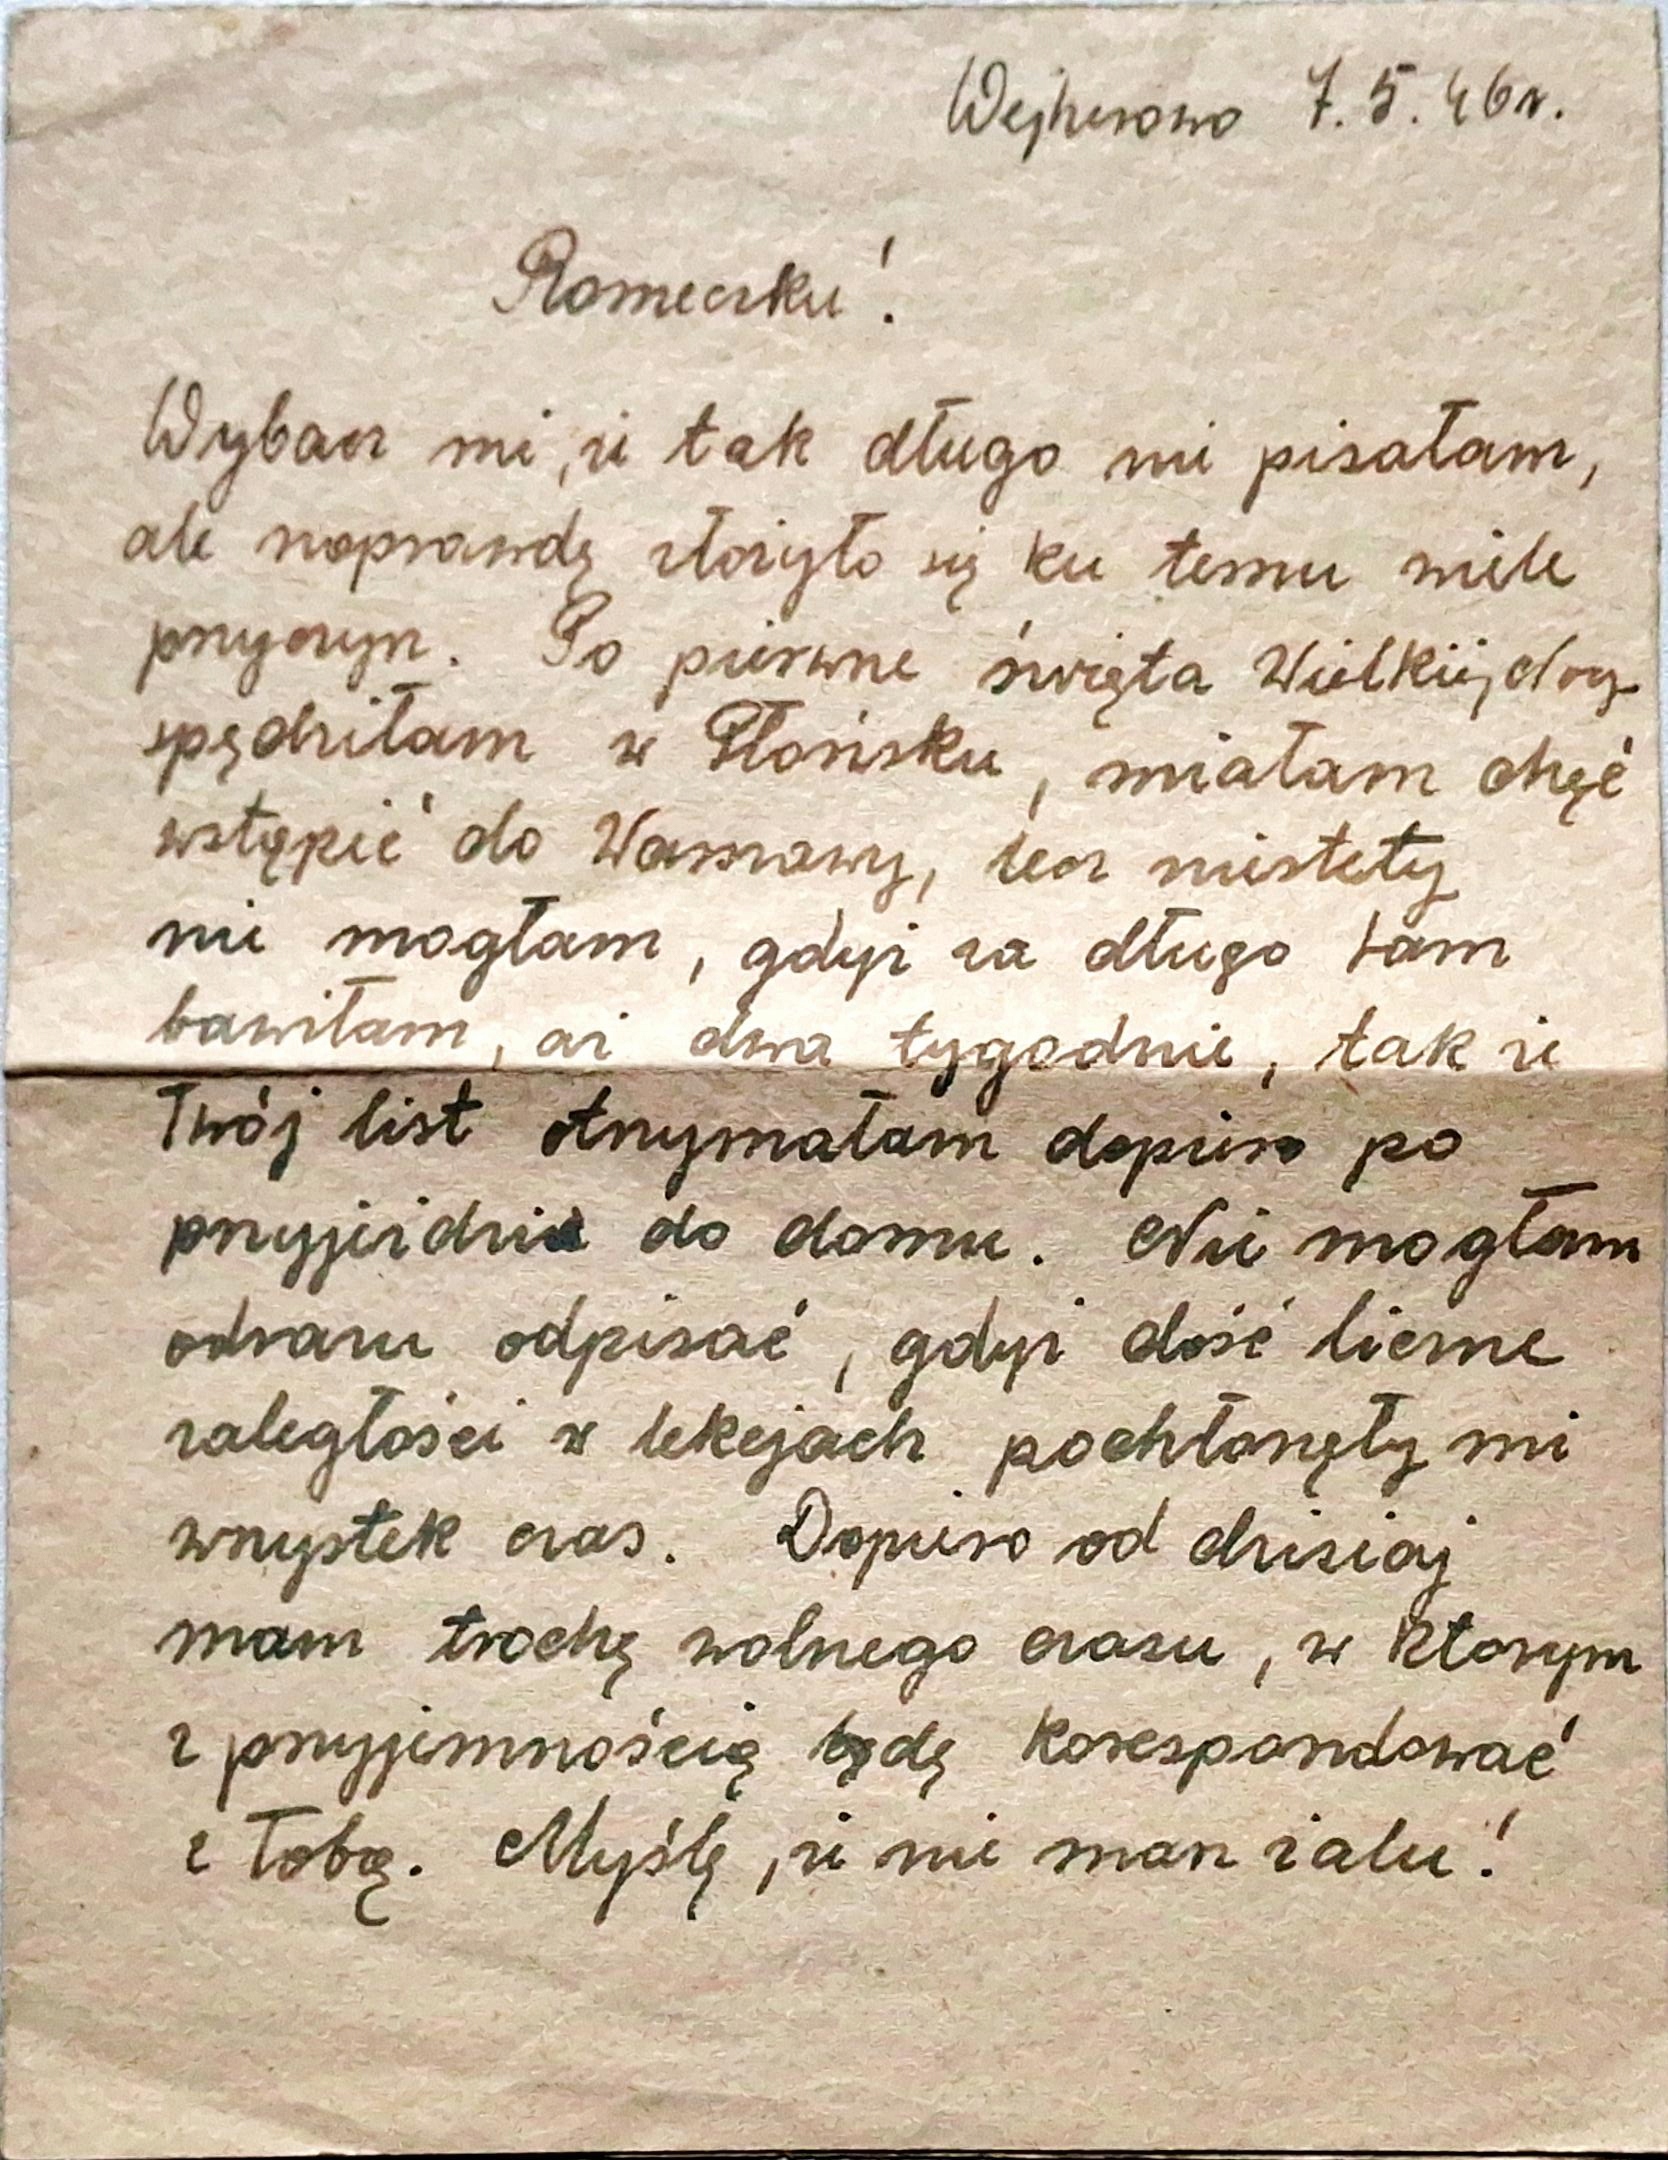 Wejherowo 7.5.46r.
Romeczku!
Wybacz mi, że tak długo nie pisałam,
ale naprawdę złożyło się ku temu wiele
przyczyn. Po pierwsze święta Wielkiej Nocy
spędziłam w Płońsku, miałam chęć
wstąpić do Warszawy, lecz niestety
nie mogłam, gdyż za długo tam
bawiłam, aż dwa tygodnie, tak że
Twój list otrzymałam dopiero po
przyjeździe do domu. Nie mogłam
odrazu odpisać, gdyż dość liczne
zaległości w lekcjach pochłonęły mi
wszystek czas. Dopiero od dzisiaj
mam trochę wolnego czasu, w ktorym
z przyjemnością będę korespondować
z Tobą. Myślę, że nie masz żalu!